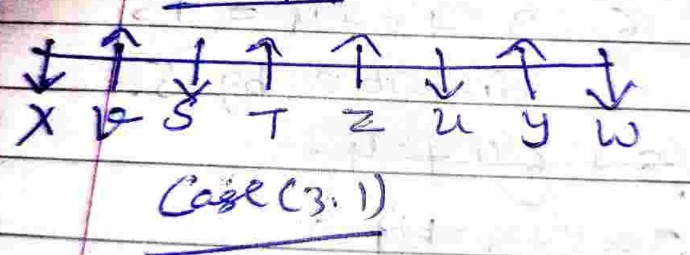 X V S T Z U Y W
Case (3.1)